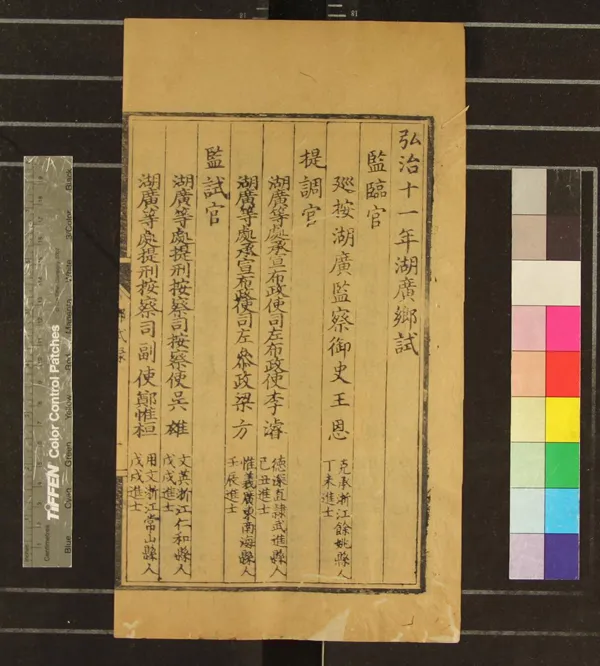 弘治十一年湖廣鄉試
監臨官
廵按湖廣監察御史王恩
克承浙江餘姚縣人
丁未進士
提調官
湖廣等處承宣布政使司左布政使李濬
德深直隷武進縣人
己丑進士
湖廣等處承宣布政使司左叅政梁方
惟義廣東南海縣人
壬辰進士
監試官
湖廣等處提刑按察司按察使吳雄
文英浙江仁和縣人
戊戌進士
湖廣等處提刑按察司副使鄭惟桓
用文浙江常山縣人
戊戌進士
TIFFEN Color Control Patches
Blue
Cyan
Green
Yellow
Red
Magenta
White
3/Color
Black
Centimetres